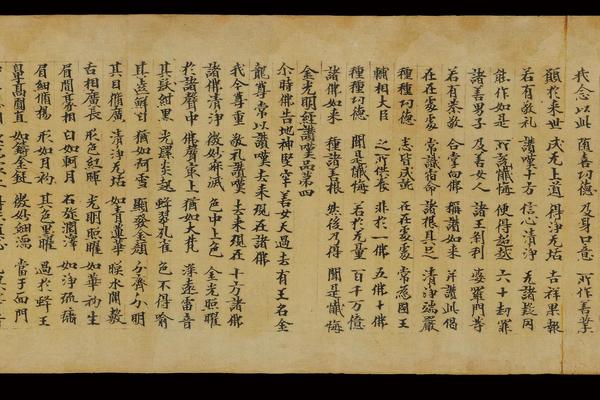 我念以此 隨喜功德 及身口意 所作善業
願於來世 成无上道 得淨无垢 吉祥果報
若有敬礼 讚嘆十方 信心清淨 无諸疑因
能作如是 所說懺悔 便得超越 六十劫罪
諸善男子 及善女人 諸王刹利 婆羅門等
若有恭敬 合掌向佛 稱讚如來 并讚此偈
在在處處 常識宿命 諸根具足 清淨端嚴
種種功德 悉皆成就 在在處處 常為國王
輔相大臣 之所供養 非於一佛 五佛十佛
種種功德 聞是懺悔 若於无量 百千万億
諸佛如來 種諸善根 然後乃得 聞是懺悔
金光明經讚嘆品第四
尒時佛告地神堅牢善女天過去有王名金
龍尊常以讚嘆去來現在諸佛
我今尊重 敬礼讚嘆 去來現在 十方諸佛
諸佛清淨 微妙寂滅 色中上色 金光照曜
於諸聲中 佛聲最上 猶如大梵 深遠雷音
其髮紺黑 光螺炎起 蜂翠孔雀 色不得喻
其齒鮮白 猶如珂雪 顯發金顏 分齊分明
其目脩廣 清淨无垢 如青蓮華 暎水開敷
舌相廣長 形色紅暉 光明照曜 如華初生
眉間毫相 白如珂月 右旋潤澤 如淨琉璃
眉細脩揚 形如月初 其色黑曜 過於蜂王
鼻高圓直 如鑄金鋌 微妙 當于面門